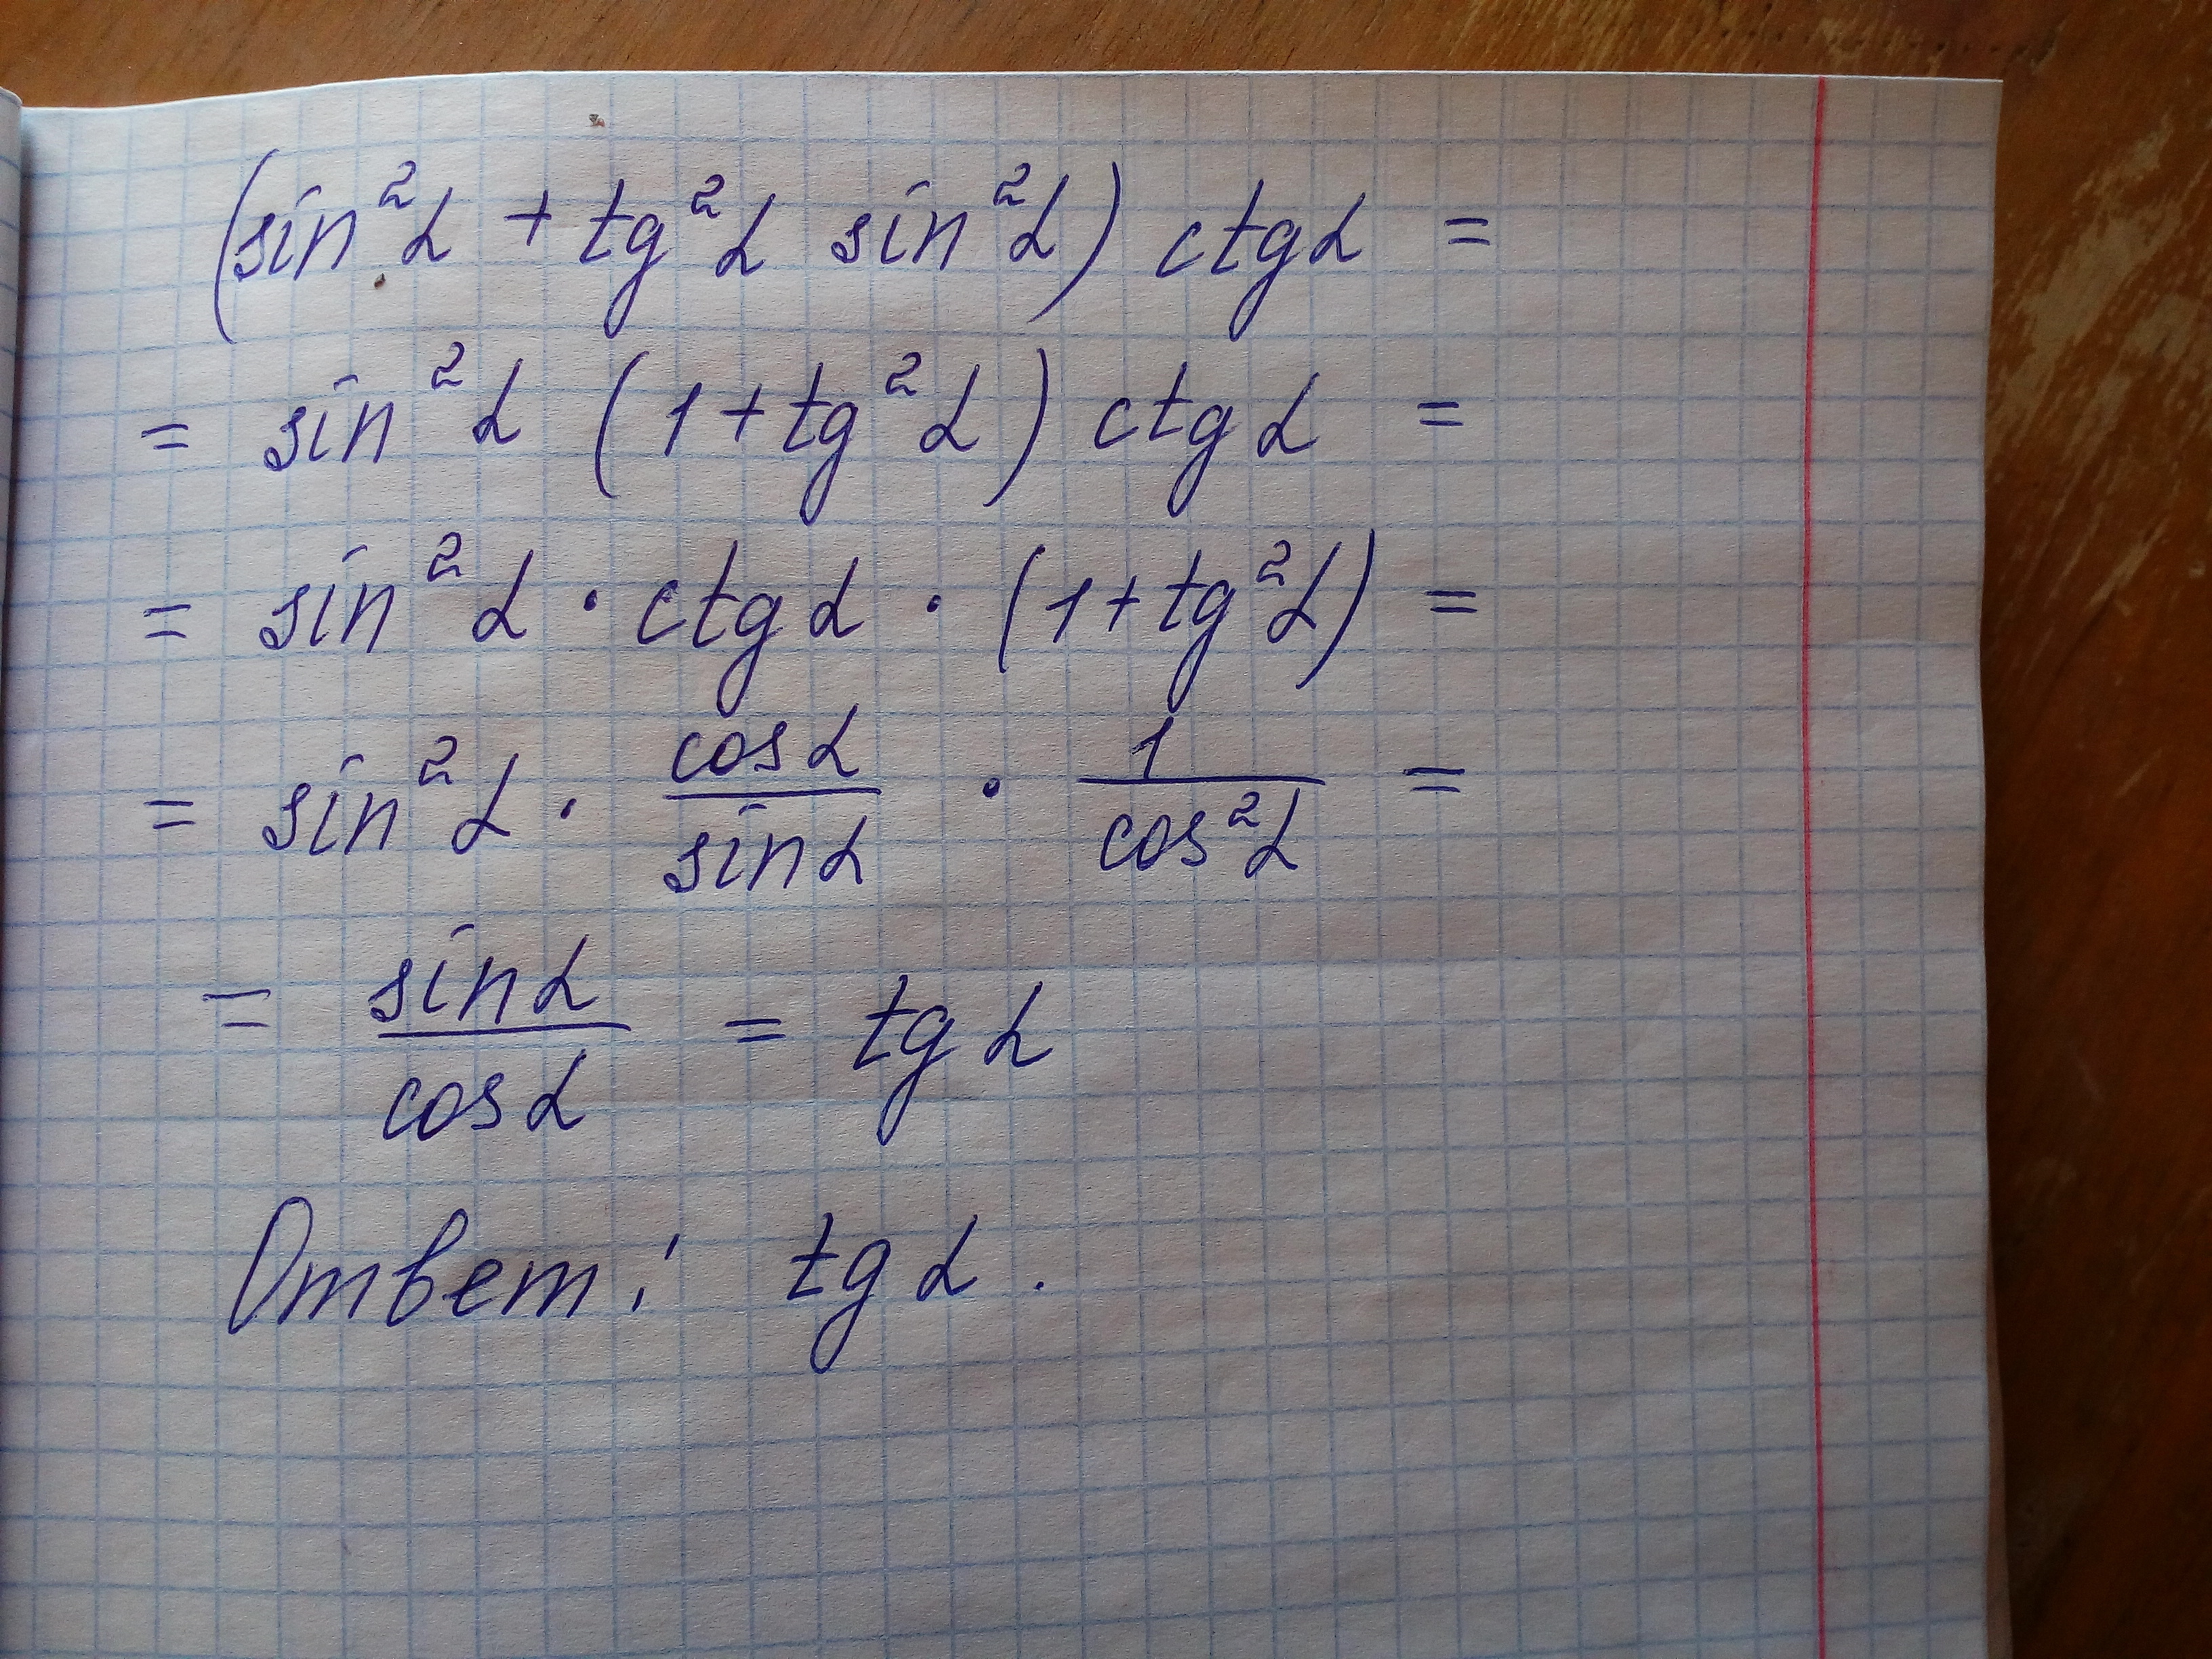 (sin²α + tg²α sin²α) ctgα =
= sin²α (1 + tg²α) ctgα =
= sin²α · ctgα · (1 + tg²α) =
= sin²α · cosα/sinα · 1/cos²α =
= sinα/cosα = tgα
Ответ: tgα.